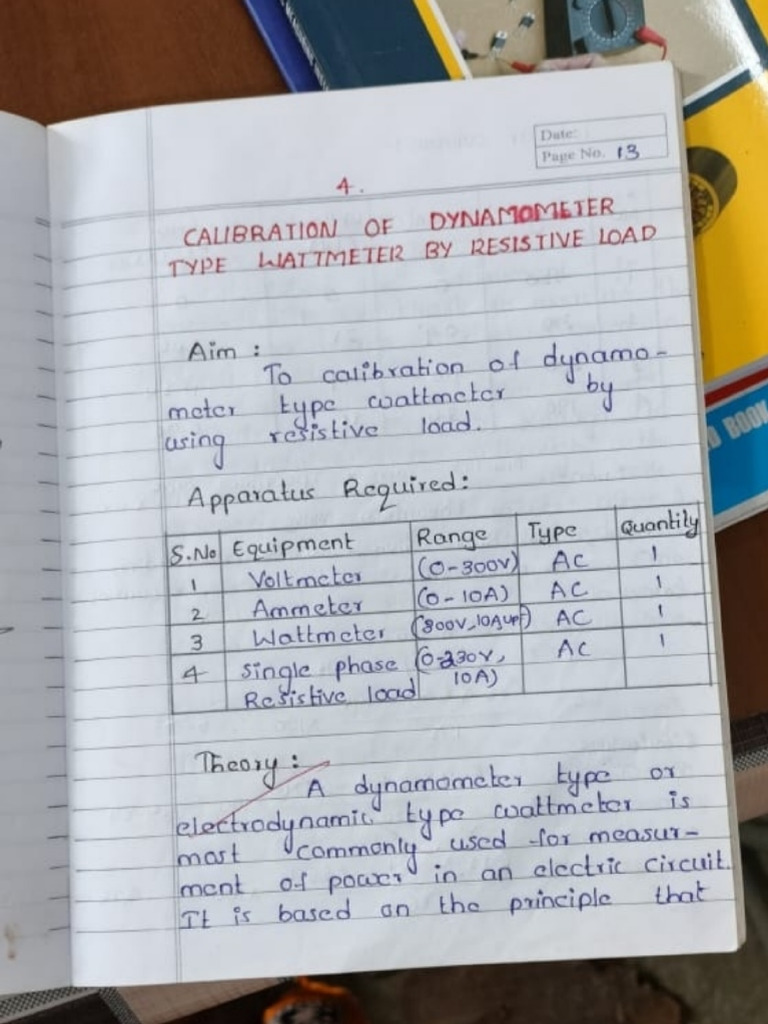 Date:
Page No. 13
4.
CALIBRATION OF DYNAMOMETER
TYPE WATTMETER BY RESISTIVE LOAD
Aim :
To calibration of dynamo-
meter type wattmeter by
using resistive load.
Apparatus Required:
S.No Equipment Range Type Quantity
1 Voltmeter (0-300V) AC 1
2 Ammeter (0-10A) AC 1
3 Wattmeter (300V,10A,upf) AC 1
4 Single phase (0-230V, AC 1
Resistive load 10A)
Theory :
A dynamometer type or
electrodynamic type wattmeter is
most commonly used for measur-
ment of power in an electric circuit.
It is based on the principle that
BOOK